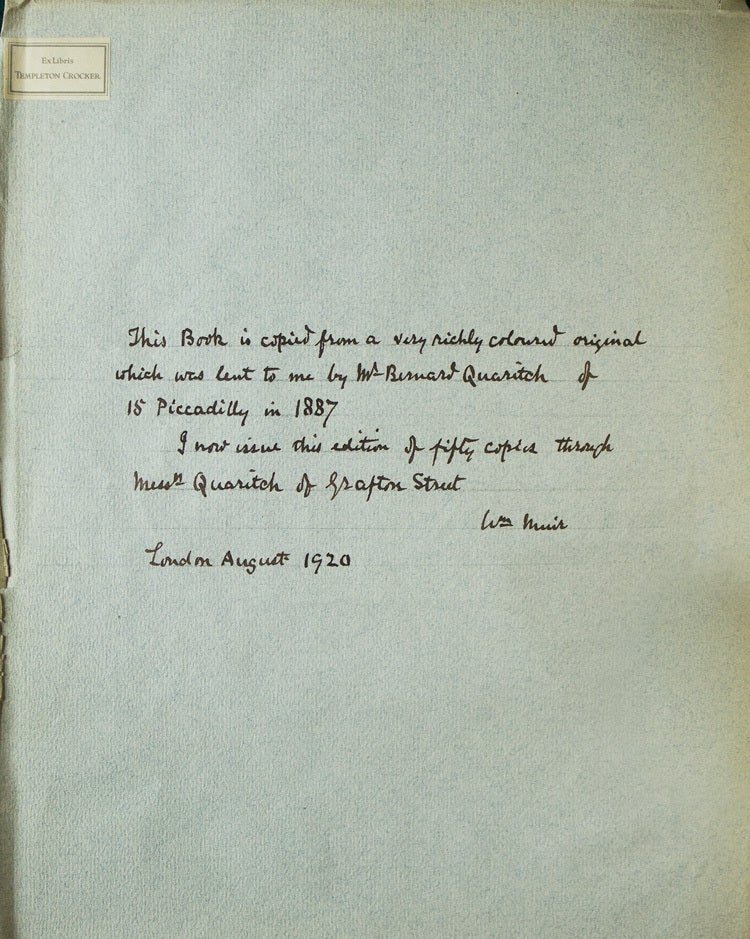 Ex Libris
TEMPLETON CROCKER
This Book is copied from a very richly coloured original
which was lent to me by Mr Bernard Quaritch of
15 Piccadilly in 1887
I now issue this edition of fifty copies through
Messrs Quaritch of Grafton Street
Wm Muir
London August 1920